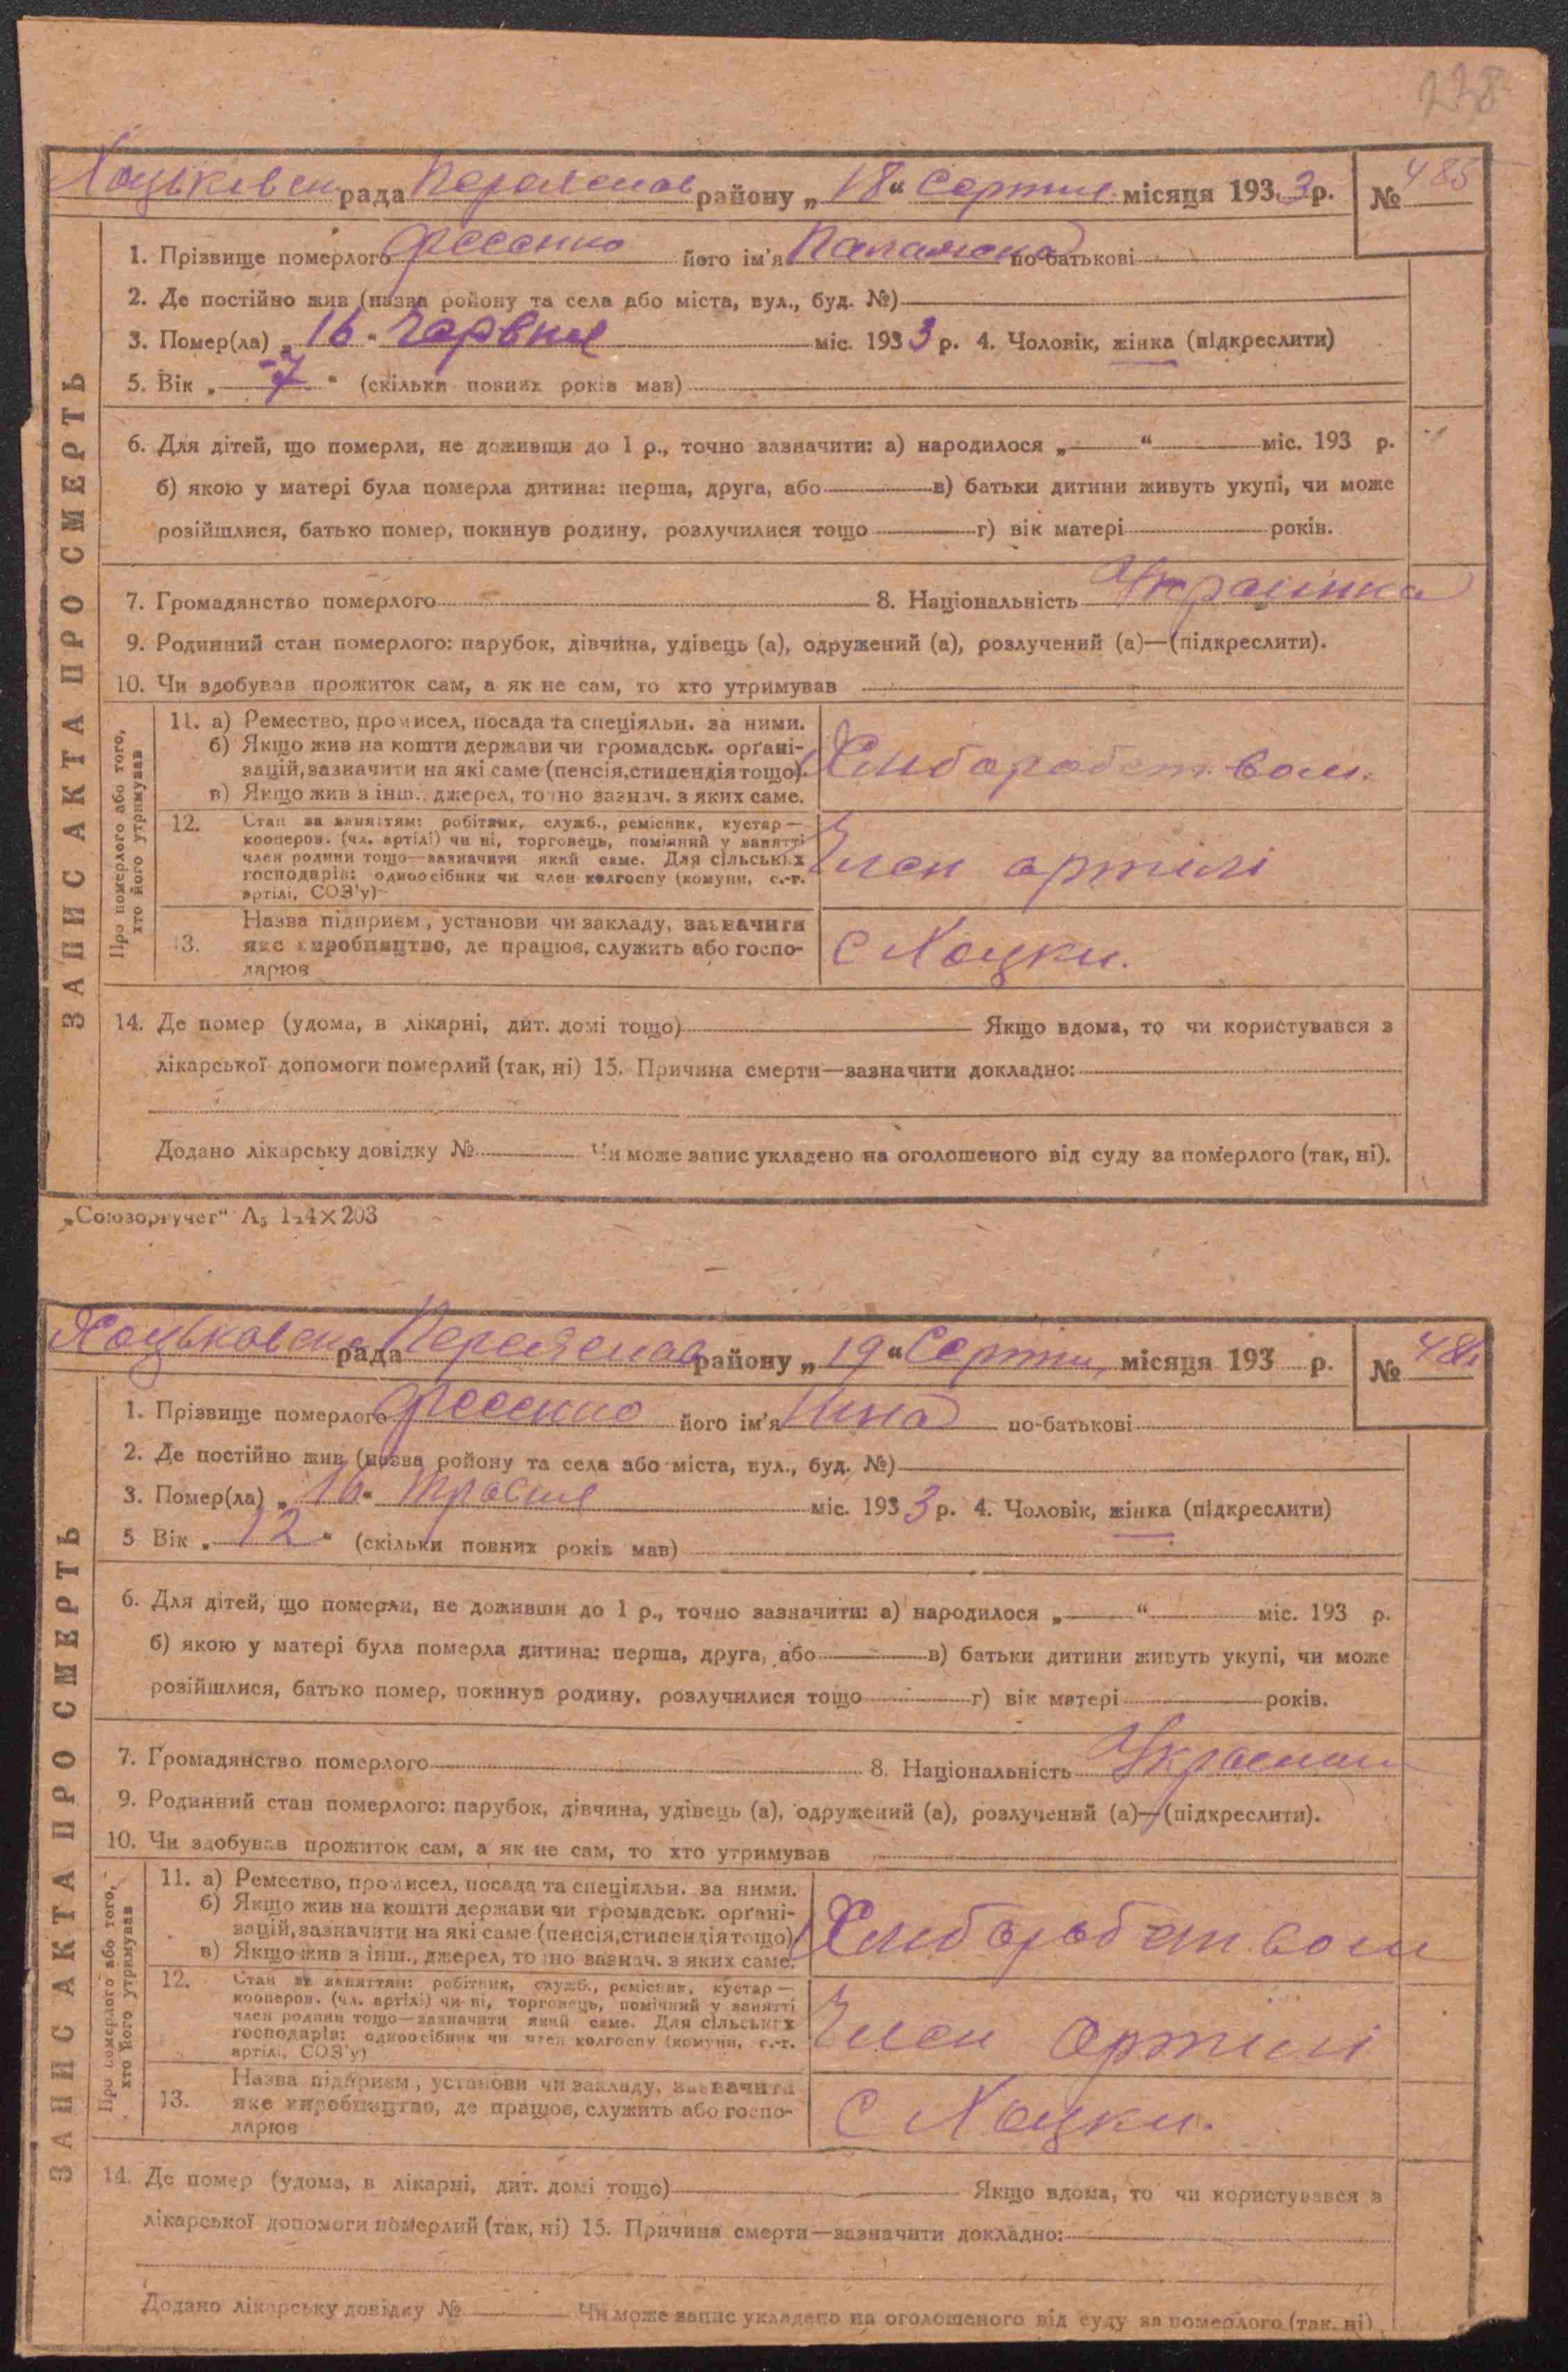 228
Хоцьківська рада Переяслав району „18“ Серпня місяця 1933 р. № 485
1. Прізвище померлого Фесенко його ім'я Палажка по-батькові
2. Де постійно жив (назва ройону та села або міста, вул., буд. №)
3. Помер(ла) „16“ Червня міс. 1933 р. 4. Чоловік, жінка (підкреслити)
5. Вік „7“ (скільки повних років мав)
6. Для дітей, що померли, не доживши до 1 р., точно зазначити: а) народилося „ “ міс. 193 р.
б) якою у матері була померла дитина: перша, друга, або в) батьки дитини живуть укупі, чи може
розійшлися, батько помер, покинув родину, розлучилися тощо г) вік матері років.
7. Громадянство померлого 8. Національність Українка
9. Родинний стан померлого: парубок, дівчина, удівець (а), одружений (а), розлучений (а)—(підкреслити).
10. Чи здобував прожиток сам, а як не сам, то хто утримував
ЗАПИС АКТА ПРО СМЕРТЬ
Про померлого або того, хто його утримував
11. а) Ремество, промисел, посада та спеціяльн. за ними.
б) Якщо жив на кошти держави чи громадськ. орґані-
зацій, зазначити на які саме (пенсія, стипендія тощо).
в) Якщо жив з інш. джерел, точно зазнач. з яких саме.
Хліборобством.
12. Стан за заняттям: робітник, служб., ремісник, кустар—
кооперов. (чл. артілі) чи ні, торговець, помічний у занятті
член родини тощо—зазначити який саме. Для сільських
господарів: одноосібник чи член колгоспу (комуни, с.-г.
артілі, СОЗ'у)
Член артілі
13. Назва підприєм., установи чи закладу, зазначити
яке виробництво, де працює, служить або госпо-
дарює
С Хоцки.
14. Де помер (удома, в лікарні, дит. домі тощо) Якщо вдома, то чи користувався з
лікарської допомоги померлий (так, ні) 15. Причина смерти—зазначити докладно:
Додано лікарську довідку № Чи може запис укладено на оголошеного від суду за померлого (так, ні).
„Союзоргучет“ А5 144×203
Хоцьковська рада Переяслав району „19“ Серпня місяця 193 р. № 486
1. Прізвище померлого Фесенко його ім'я Нина по-батькові
2. Де постійно жив (назва ройону та села або міста, вул., буд. №)
3. Помер(ла) „16“ травня міс. 1933 р. 4. Чоловік, жінка (підкреслити)
5 Вік „12“ (скільки повних років мав)
6. Для дітей, що померли, не доживши до 1 р., точно зазначити: а) народилося „ “ міс. 193 р.
б) якою у матері була померла дитина: перша, друга, або в) батьки дитини живуть укупі, чи може
розійшлися, батько помер, покинув родину, розлучилися тощо г) вік матері років.
7. Громадянство померлого 8. Національність
9. Родинний стан померлого: парубок, дівчина, удівець (а), одружений (а), розлучений (а)—(підкреслити).
10. Чи здобував прожиток сам, а як не сам, то хто утримував
ЗАПИС АКТА ПРО СМЕРТЬ
Про померлого або того, хто його утримував
11. а) Ремество, промисел, посада та спеціяльн. за ними.
б) Якщо жив на кошти держави чи громадськ. орґані-
зацій, зазначити на які саме (пенсія, стипендія тощо)
в) Якщо жив з інш., джерел, точно зазнач. з яких саме.
Хліборобством
12. Стан за заняттям: робітник, служб., ремісник, кустар—
кооперов. (чл. артілі) чи ні, торговець, помічний у занятті
член родини тощо—зазначити який саме. Для сільських
господарів: одноосібник чи член колгоспу (комуни, с.-г.
артілі, СОЗ'у)
Член артілі
13. Назва підприєм., установи чи закладу, зазначити
яке виробництво, де працює, служить або госпо-
дарює
С Хоцки.
14. Де помер (удома, в лікарні, дит. домі тощо) Якщо вдома, то чи користувався з
лікарської допомоги померлий (так, ні) 15. Причина смерти—зазначити докладно:
Додано лікарську довідку № Чи може запис укладено на оголошеного від суду за померлого (так, ні)